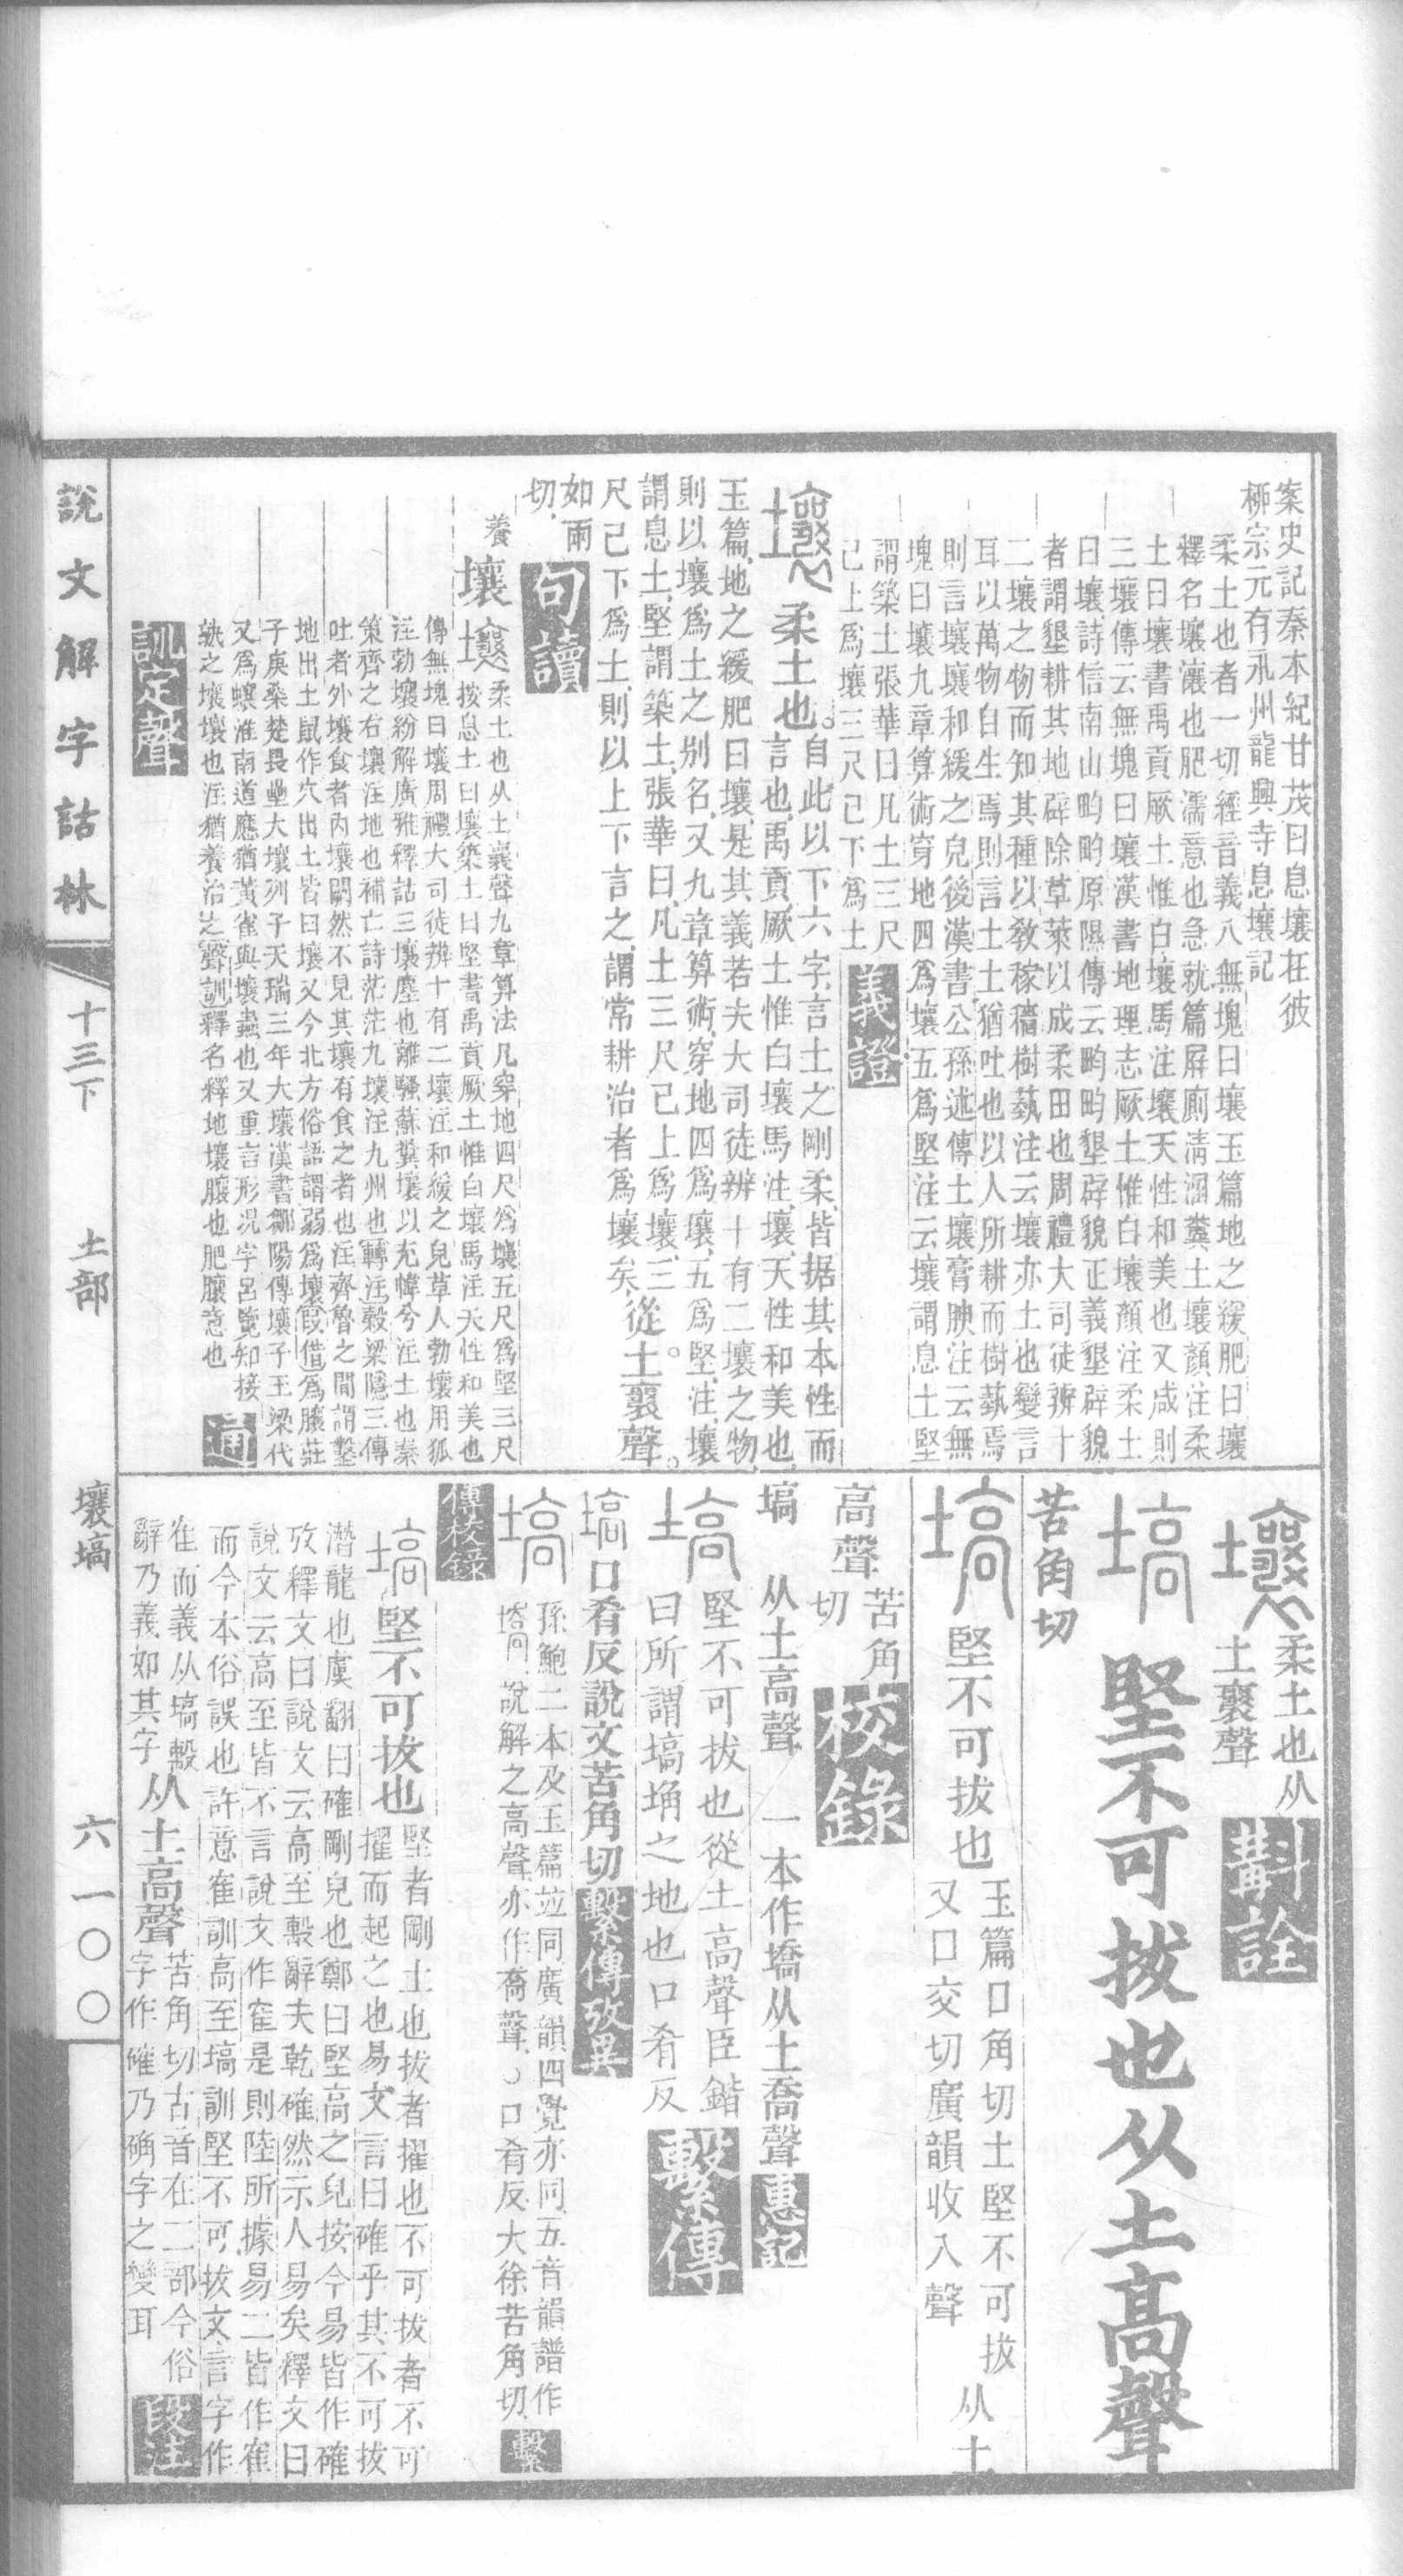 案史記秦本紀甘茂曰息壤在彼
柳宗元有永州龍興寺息壤記
柔土也者一切經音義八無塊曰壤玉篇地之緩肥曰壤
釋名壤瀼也肥濡意也急就篇屏廁清溷糞土壤顏注柔
土曰壤書禹貢厥土惟白壤馬注壤天性和美也又咸則
三壤傳云無塊曰壤漢書地理志厥土惟白壤顏注柔土
曰壤詩信南山畇畇原隰傳云畇畇墾辟貌正義墾辟貌
者謂墾耕其地辟除草萊以成柔田也周禮大司徒辨十
二壤之物而知其種以敎稼穡樹蓺注云壤亦土也變言
耳以萬物自生焉則言土土猶吐也以人所耕而樹蓺焉
則言壤壤和緩之皃後漢書公孫述傳土壤膏腴注云無
塊曰壤九章算術穿地四爲壤五爲堅注云壤謂息土堅
謂築土張華曰凡土三尺
己上爲壤三尺己下爲土
義證
壤 柔土也。自此以下六字言土之剛柔皆据其本性而
言也禹貢厥土惟白壤馬注壤天性和美也
玉篇地之緩肥曰壤是其義若夫大司徒辨十有二壤之物
則以壤爲土之別名又九章算術穿地四爲壤五爲堅注壤
謂息土堅謂築土張華曰凡土三尺己上爲壤三
尺己下爲土則以上下言之謂常耕治者爲壤矣從土襄聲。
如兩
切
句讀
養 壤 壤 柔土也从土襄聲九章算法凡穿地四尺爲壤五尺爲堅三尺
按息土曰壤築土曰堅書禹貢厥土惟白壤馬注天性和美也
傳無塊曰壤周禮大司徒辨十有二壤注和緩之皃草人勃壤用狐
注勃壤紛解廣雅釋詁三壤塵也離騷蘇糞壤以充幃兮注土也秦
策齊之右壤注地也補亡詩茫茫九壤注九州也轉注穀梁隱三傳
吐者外壤食者內壤闕然不見其壤有食之者也注齊魯之間謂鑿
地出土鼠作穴出土皆曰壤又今北方俗語謂弱爲壤假借爲膿莊
子庚桑楚畏壘大壤列子天瑞三年大壤漢書鄒陽傳壤子王梁代
又爲蠰淮南道應猶黃雀與壤蟲也又重言形況字呂覽知接
孰之壤壤也注猶養治之聲訓釋名釋地壤膿也肥膿意也
通
訓定聲
壤 柔土也从
土襄聲
斠詮
塙 堅不可拔也从土高聲
苦角切
塙 堅不可拔也 玉篇口角切土堅不可拔
又口交切廣韻收入聲 从土
高聲 苦角
切
校錄
塙 从土高聲 一本作墧从土喬聲
惠記
塙 堅不可拔也從土高聲臣鍇
曰所謂塙埆之地也口肴反
繫傳
塙口肴反說文苦角切
繫傳攷異
塙 孫鮑二本及玉篇竝同廣韻四覺亦同五音韻譜作
塙說解之高聲亦作喬聲口肴反大徐苦角切
繫
傳校錄
塙 堅不可拔也 堅者剛土也拔者擢也不可拔者不可
擢而起之也易文言曰確乎其不可拔
潛龍也虞翻曰確剛皃也鄭曰堅高之皃按今易皆作確
攷釋文曰說文云高至毄辭夫乾確然示人易矣釋文曰
說文云高至皆不言說文作隺是則陸所據易二皆作隺
而今本俗誤也許意隺訓高至塙訓堅不可拔文言字作
隺而義从塙毄
辭乃義如其字从土高聲 苦角切古音在二部今俗
字作確乃确字之變耳
段注
說文解字詁林
十三下
土部
壤塙
六一〇〇